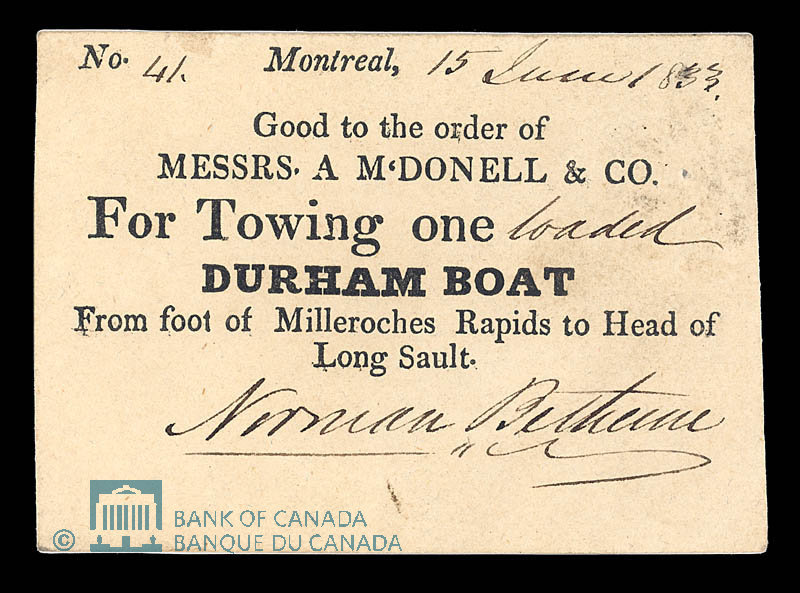 No. 41. Montreal, 15 June 1833.
Good to the order of
MESSRS. A M'DONELL & CO.
For Towing one loaded
DURHAM BOAT
From foot of Milleroches Rapids to Head of
Long Sault.
Norman Bethune
© BANK OF CANADA
BANQUE DU CANADA